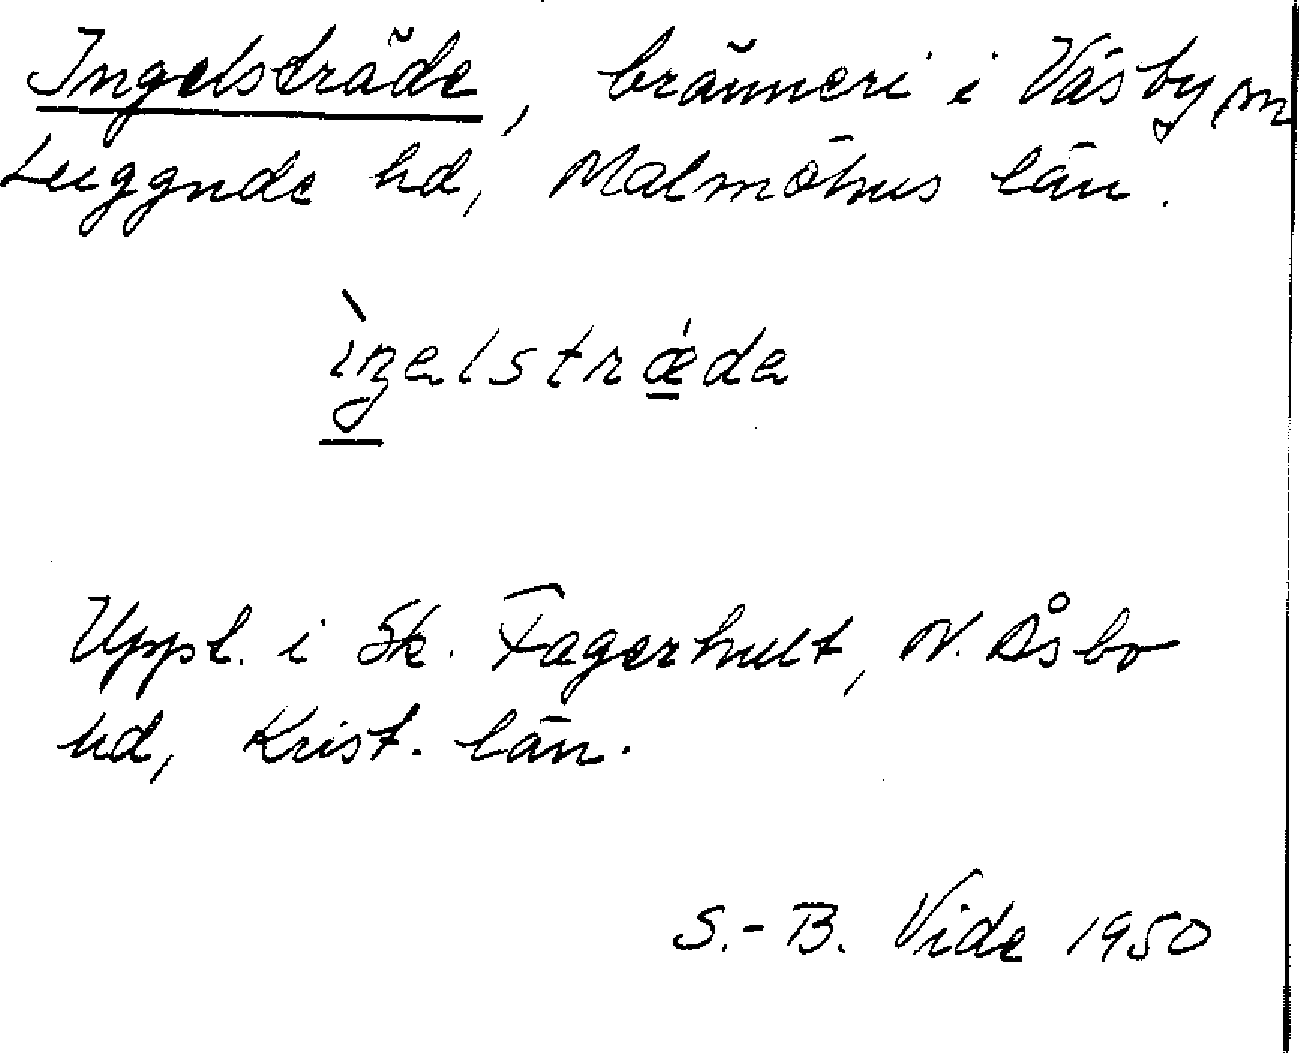 Ingelsträde, bränneri i Väsby sn
Luggude hd, Malmöhus län.
ìŋəlstrǽdə
Uppt. i Sk. Fagerhult, N. Åsbo
hd, Krist. län.
S.-B. Vide 1950